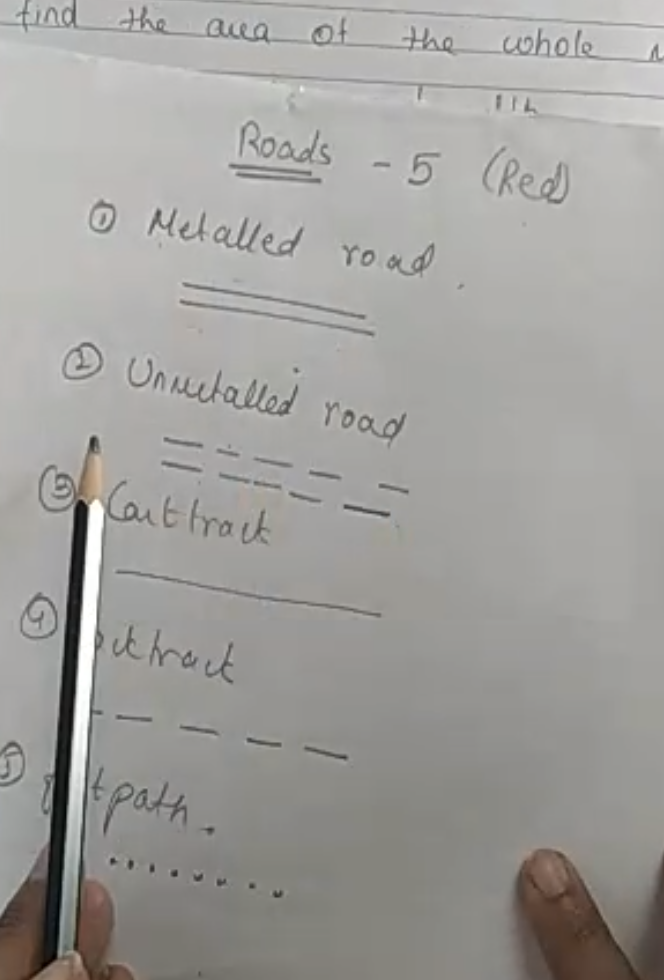 find the area of the whole
Roads - 5 (Red)
① Metalled road.
② Unmetalled road
③ Carttrack
④ cktrack
⑤ tpath.